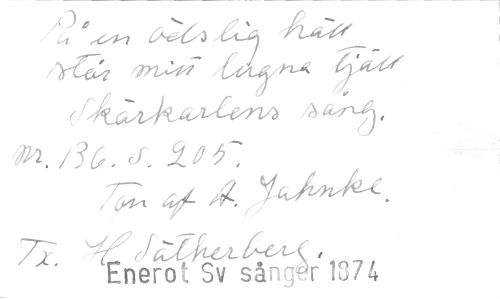 På en ödslig hätt
står mitt lugna tjäll
Skärkarlens sång.
Nr. 136. S. 205.
Ton af A. Jahnke.
Tx. H Sätherberg.
Enerot Sv sånger 1874